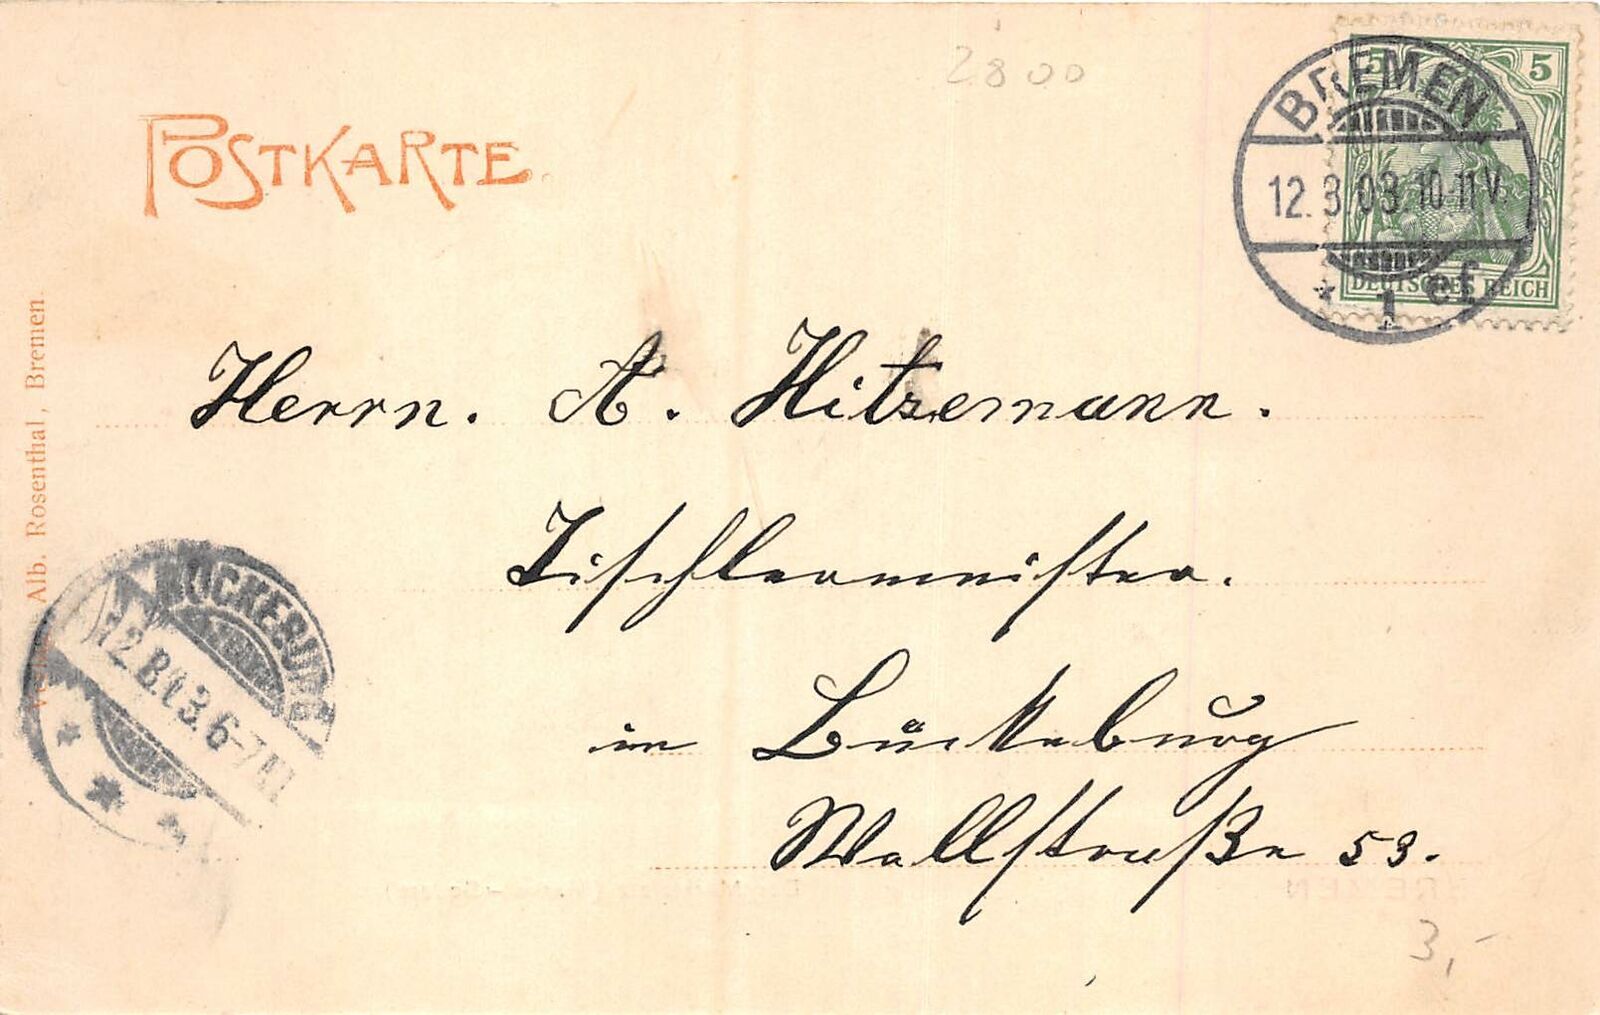 2800
POSTKARTE.
5 5
DEUTSCHES REICH
BREMEN
12.3.03.10-11V.
* 1 ef
Herrn. A. Hitzemann.
Tischlermeister.
in Bückeburg
Wallstraße 53.
Alb. Rosenthal, Bremen.
BÜCKEBURG
12. 03. 6-7N
* * *
BREMEN
3,-